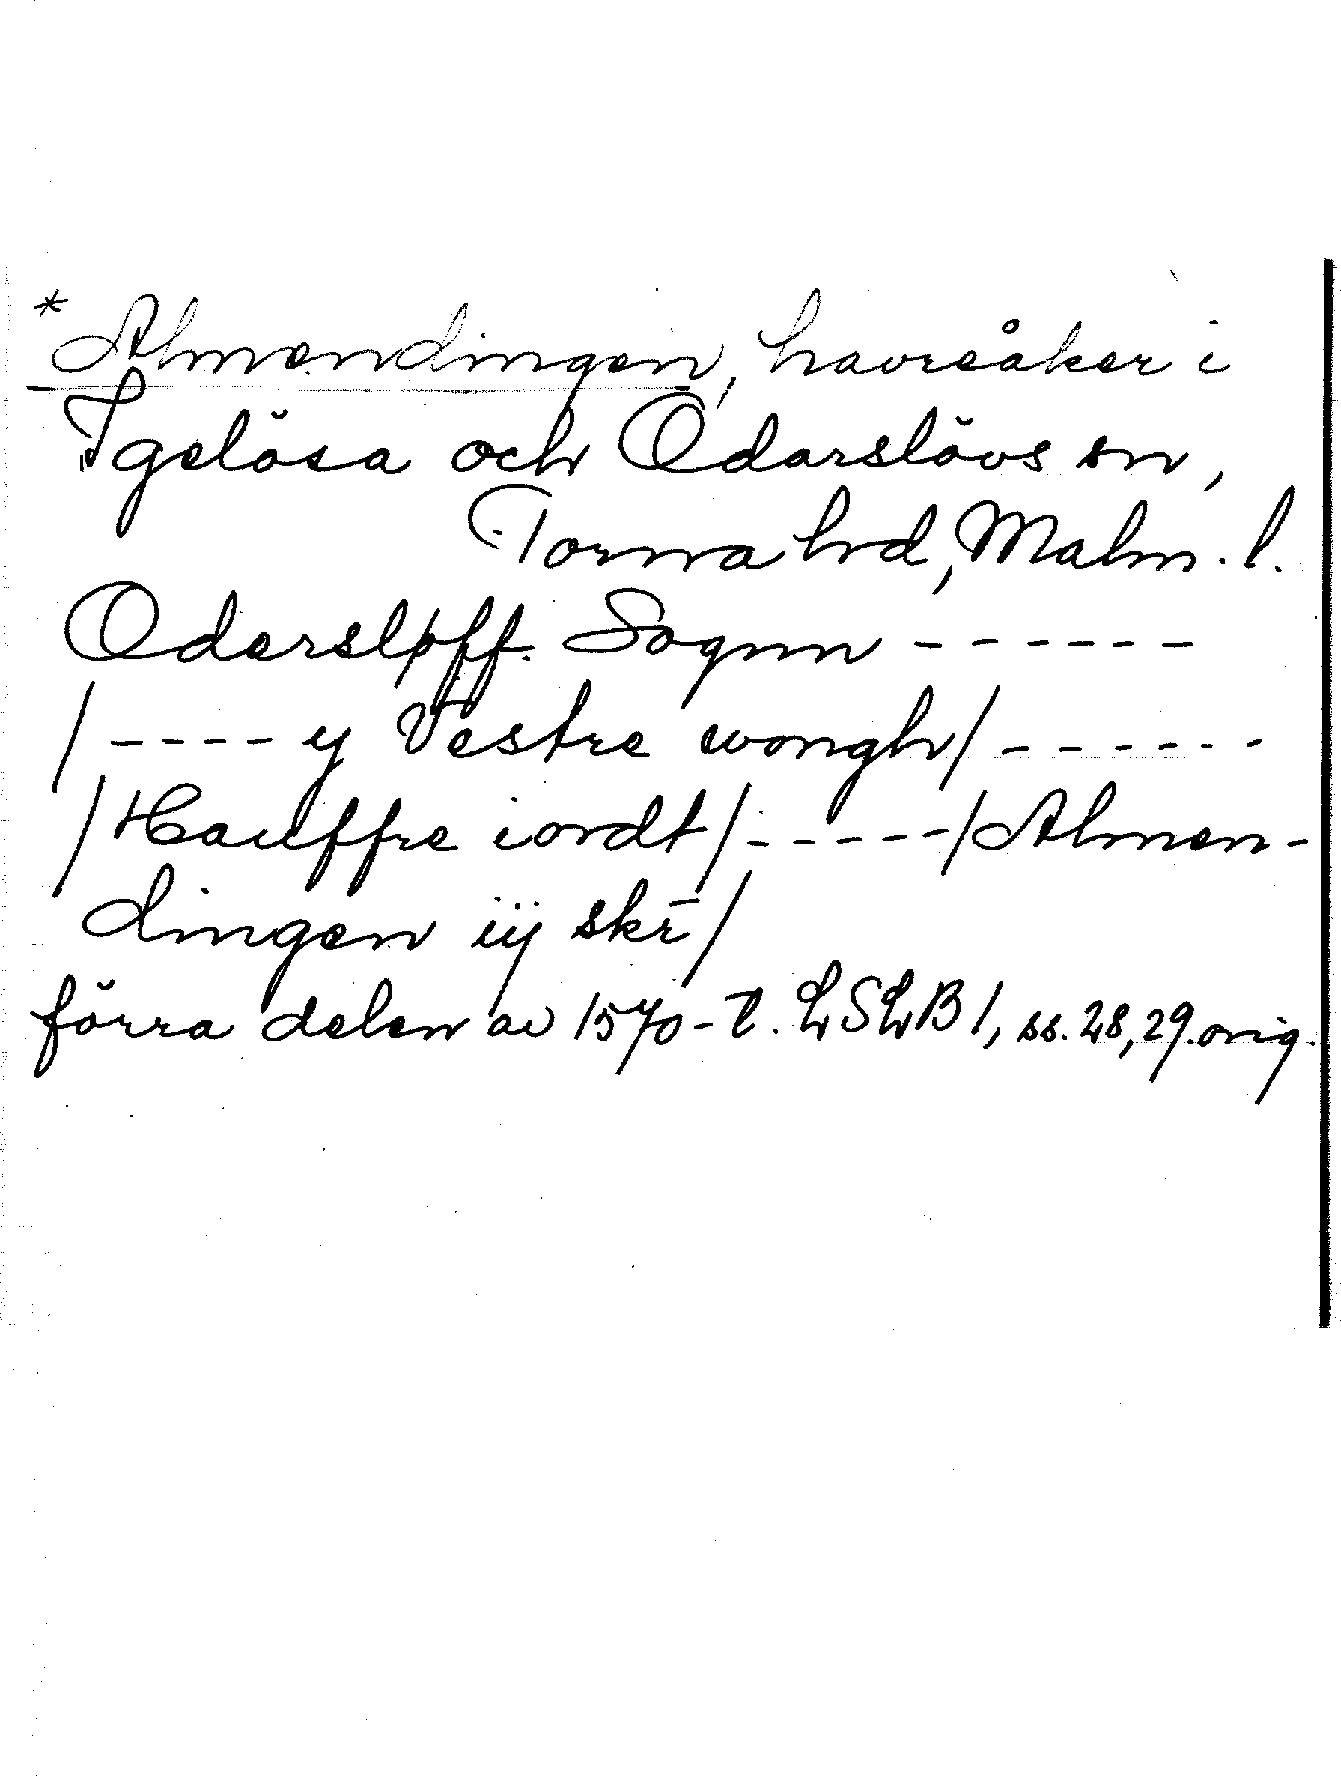 *Almendingen, havreåker i
Igelösa och Odarslövs sn,
Torna hrd, Malm. l.
Odersløff. Sognn ------
/---- y Vestre wongh/ ------
/Hauffre iordt/-----/Almen-
dingen iij skr̄/
förra delen av 1570-t. LSLB 1, ss. 28, 29. orig.